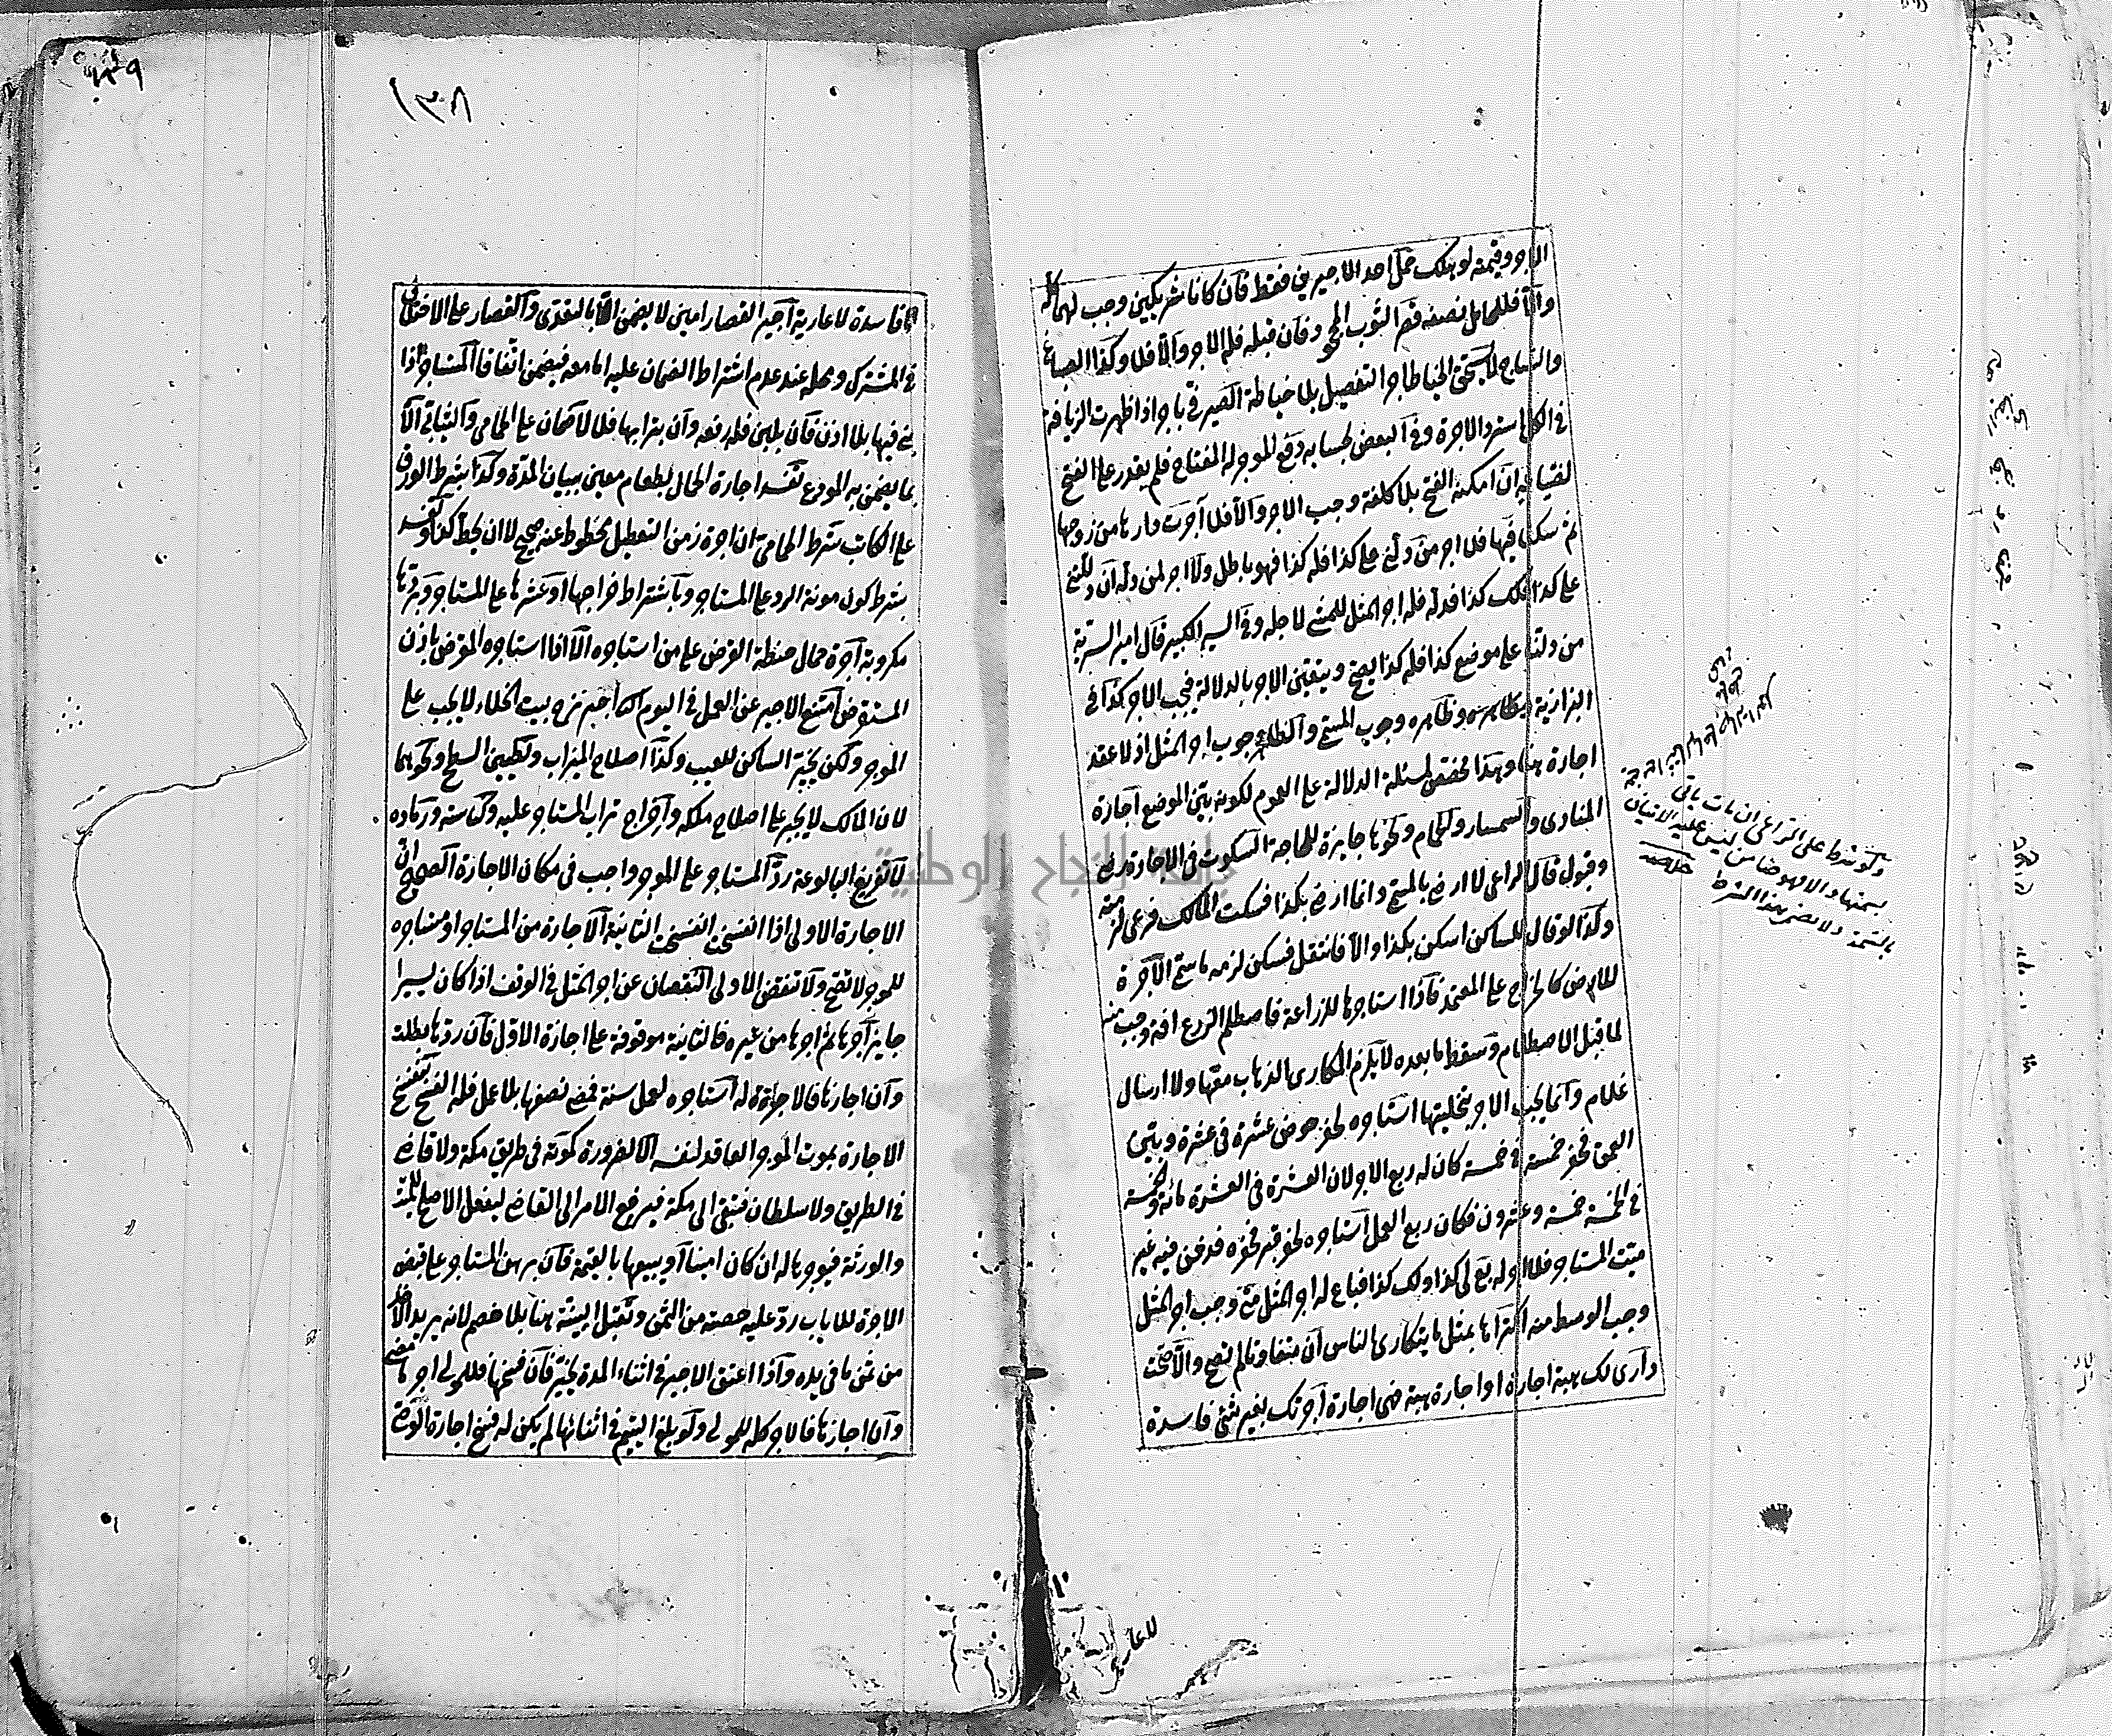 الاجر وقيمته لو هلك حمل احد الاجيرين فقط فان كانا شريكين وجب لهما كله
والا فللحامل نصفه قصر الثوب المجحود فان قبله فله الاجر والا فلا وكذا الصباغ
والنساج لا يستحق الخياط اجر التفصيل بلا خياطة الصيرفي باجر اذا ظهرت الزيافة
في الكل استرد الاجرة وفي البعض بحسابه دفع المؤجر له المفتاح فلم يقدر على الفتح
لضياعه ان امكنه الفتح بلا كلفة وجب الاجر والا فلا آجرت دارها من زوجها
ثم سكنا فيها فلا اجر من دلني على كذا فله كذا فهو باطل ولا اجر لمن دله ان دللتني
على كذا فلك كذا فدله فله اجر المثل للمشي لاجله وفي السير الكبير قال امير السرية
من دلنا على موضع كذا فله كذا يصح ويتعين الاجر بالدلالة فيجب الاجر كذا في
البزازية وظاهره وجوب المسمى والظاهر وجوب اجر المثل اذ لا عقد
اجارة هنا وهذا مخصص لمسئلة الدلالة على العموم لكونه بين الموضع اجارة
المنادي والسمسار والحمام ونحوها جايزة للحاجة السكوت في الاجارة رضى
وقبول قال الراعي لا ارضى بالمسمى وانما ارضى بكذا فسكت المالك فرعى لزمته
وكذا لو قال للساكن اسكن بكذا والا فانتقل فسكن لزمه ما سمى الاجرة
للارض كالخراج على المعتمد فاذا استاجرها للزراعة فاصطلم الزرع افة وجب منه
لما قبل الاصطلام وسقط ما بعده لا يلزم المكاري الذهاب معها ولا ارسال
غلام وانما يجب الاجر بتخليتها استاجره لحفر حوض عشرة في عشرة وبين
العمق فحفر خمسة في خمسة كان له ربع الاجر لان العشرة في العشرة مائة والخمسة
في الخمسة خمسة وعشرون فكان ربع العمل استاجره لحفر قبر فحفره فدفن فيه غير
ميت المستاجر فلا اجر له بع لي كذا ولك كذا فباع له اجر المثل متى وجب اجر المثل
وجب الوسط منه اكتراها بمثل ما يتكارى الناس ان متفاوتا لم تصح والا صحت
داري لك هبة اجارة او اجارة هبة فهي اجارة آجرتك بغير شئ فاسدة
ولو شرط على الراعي ان مات ياتي
بسمتها والا فهو ضامن ليس عليه الاتيان
بالسمة ولا يضمن بهذا الشرط خلاصة
١٣٩
١٣٨
فاسدة لا عارية آجير القصار امين لا يضمن الا بالتعدي والقصار على الاختلاف
في المشترك ومحله عند عدم اشتراط الضمان عليه اما معه فيضمن اتفاقا المستاجر اذا
بنى فيها بلا اذن فان بلبن فله رفعه وان بترابها فلا لا ضمان على الحمامي والثيابي الا
بما يضمن به المودع تفسد اجارة الحمال بطعام معين ببيان المدة وكذا بشرط الورق
على الكاتب شرط الحمامي ان اجرة زمن التعطيل محطوط عنه صحيح لا ان يحط كذا وتفسد
بشرط كون مونة الرد على المستاجر وباشتراط خراجها او عشرها على المستاجر وبردها
مكروبة آجرة حمال حنطة القرض على من استاجره الا اذا استاجره المقرض باذن
المستقرض امتنع الاجير عن العمل في اليوم الثاني اجبر نزح بيت الخلاء لا يجب على
المؤجر ولكن يخير الساكن للعيب وكذا اصلاح الميزاب وتطيين السطح ونحوهما
لان المالك لا يجبر على اصلاح ملكه واخراج تراب المستاجر عليه وكناسته ورماده
لا تفريغ البالوعة رد المستاجر على المؤجر واجب في مكان الاجارة الصحيح ان
الاجارة الاولى اذا انفسخت انفسخت الثانية الاجارة من المستاجر او مستاجره
للمؤجر لا تصح ولا تنقض الاولى النقصان عن اجر المثل في الوقف اذا كان يسيرا
جايز آجرها ثم اجرها من غيره فالثانية موقوفة على اجازة الاول فان ردها بطلت
وان اجازها فالاجرة له استاجره لعمل سنة فمضى نصفها بلا عمل فله الفسخ تنفسخ
الاجارة بموت المؤجر العاقد لنفسه الا لضرورة كموته في طريق مكة ولا قاضي
في الطريق ولا سلطان فتبقى الى مكة فيرفع الامر الى القاضي ليفعل الاصلح للميت
والورثة فيؤجرها له ان كان امينا او يبيعها بالقيمة فان برهن المستاجر على قبض
الاجرة للاياب رد عليه حصته من الثمن وتقبل البينة هنا بلا خصم لانه يريد الاخذ
من ثمن ما في يده واذا اعتق الاجير في اثناء المدة يخير فان فسخها فللمولى اجر ما مضى
وان اجازها فالاجر كله للمولى ولو بلغ اليتيم في اثنائها لم يكن له فسخ اجارة الوصي
جامعة النجاح الوطنية